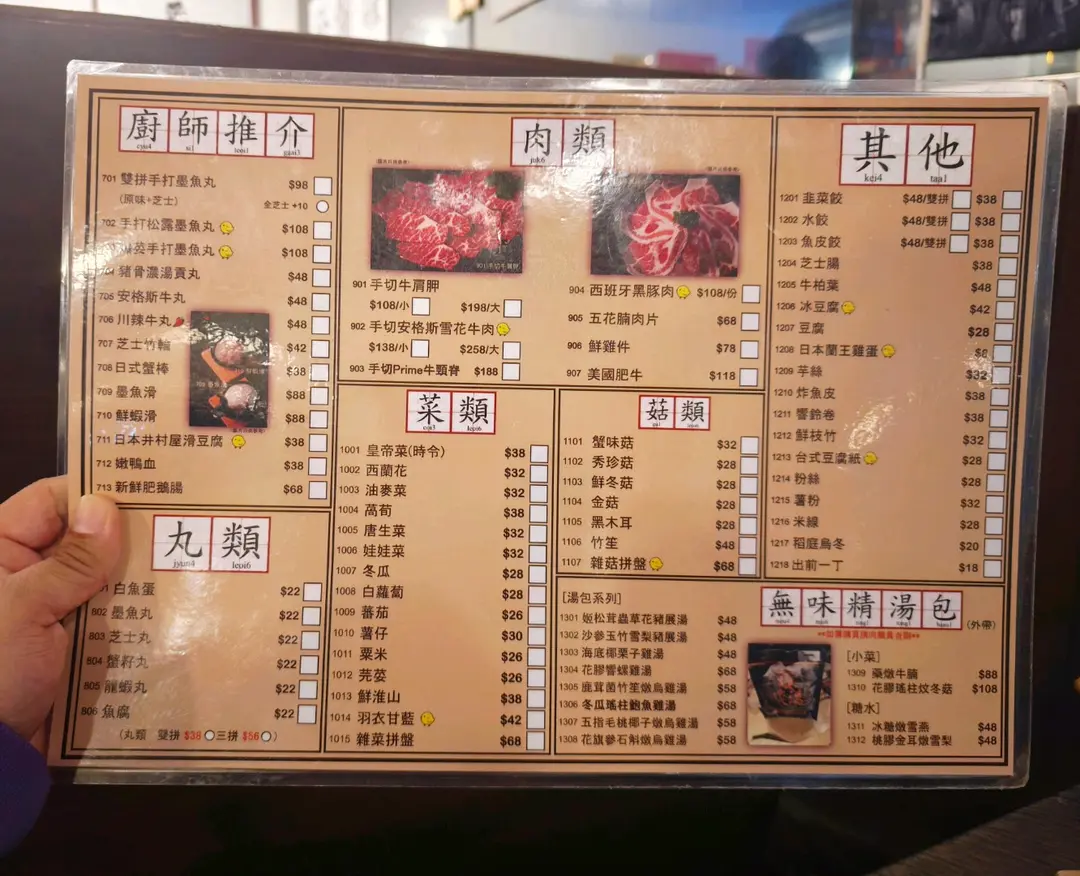 廚師推介
701 雙拼手打墨魚丸 $98
(原味+芝士) 全芝士 +10
702 手打松露墨魚丸 $108
手打墨魚丸 $108
豬骨濃湯貢丸 $48
705 安格斯牛丸 $48
706 川辣牛丸 $48
707 芝士竹輪 $42
708 日式蟹棒 $38
709 墨魚滑 $88
710 鮮蝦滑 $88
711 日本井村屋滑豆腐 $38
712 嫩鴨血 $38
713 新鮮肥鵝腸 $68
丸類
jyun4 leoi6
白魚蛋 $22
802 墨魚丸 $22
803 芝士丸 $22
804 蟹籽丸 $22
805 龍蝦丸 $22
806 魚腐 $22
(丸類 雙拼 $38 三拼 $56 )
肉類
juk6
901 手切牛肩胛
$108/小 $198/大
902 手切安格斯雪花牛肉
$138/小 $258/大
903 手切Prime牛頸脊 $188
904 西班牙黑豚肉 $108/份
905 五花腩肉片 $68
906 鮮雞件 $78
907 美國肥牛 $118
菜類
coi3 leoi6
1001 皇帝菜(時令) $38
1002 西蘭花 $32
1003 油麥菜 $32
1004 萵筍 $38
1005 唐生菜 $32
1006 娃娃菜 $32
1007 冬瓜 $28
1008 白蘿蔔 $28
1009 蕃茄 $26
1010 薯仔 $30
1011 粟米 $26
1012 芫荽 $26
1013 鮮淮山 $38
1014 羽衣甘藍 $42
1015 雜菜拼盤 $68
菇類
1101 蟹味菇 $32
1102 秀珍菇 $28
1103 鮮冬菇 $28
1104 金菇 $28
1105 黑木耳 $28
1106 竹笙 $48
1107 雜菇拼盤 $68
其他
kei4 taa1
1201 韭菜餃 $48/雙拼 $38
1202 水餃 $48/雙拼 $38
1203 魚皮餃 $48/雙拼 $38
1204 芝士腸 $38
1205 牛柏葉 $48
1206 冰豆腐 $42
1207 豆腐 $28
1208 日本蘭王雞蛋
1209 芋絲 $32
1210 炸魚皮 $38
1211 響鈴卷 $38
1212 鮮枝竹 $32
1213 台式豆腐紙 $28
1214 粉絲 $28
1215 薯粉 $32
1216 米線 $28
1217 稻庭烏冬 $20
1218 出前一丁 $18
無味精湯包 (外帶)
[湯包系列]
1301 姬松茸蟲草花豬展湯 $48
1302 沙參玉竹雪梨豬展湯 $48
1303 海底椰栗子雞湯 $48
1304 花膠響螺雞湯 $68
1305 鹿茸菌竹笙燉烏雞湯 $58
1306 冬瓜瑤柱鮑魚雞湯 $68
1307 五指毛桃椰子燉烏雞湯 $58
1308 花旗參石斛燉烏雞湯 $58
[小菜]
1309 藥燉牛腩 $88
1310 花膠瑤柱炆冬菇 $108
[糖水]
1311 冰糖燉雪燕 $48
1312 桃膠金耳燉雪梨 $48